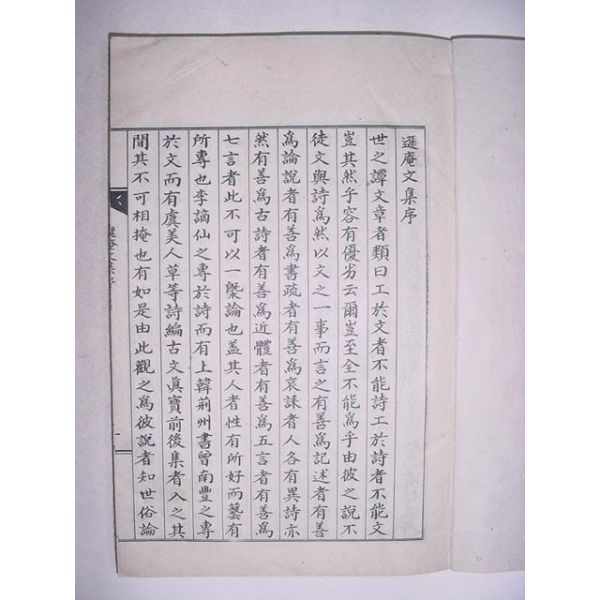 遯庵文集序
世之譚文章者類曰工於文者不能詩工於詩者不能文
豈其然乎容有優劣云爾豈至全不能爲乎由彼之說不
徒文與詩爲然以文之一事而言之有善爲記述者有善
爲論說者有善爲書疏者有善爲哀誄者人各有異詩亦
然有善爲古詩者有善爲近體者有善爲五言者有善爲
七言者此不可以一槩論也盖其人者性有所好而藝有
所專也李謫仙之專於詩而有上韓荊州書曾南豐之專
於文而有虞美人草等詩編古文眞寶前後集者入之其
間其不可相掩也有如是由此觀之爲彼說者知世俗論